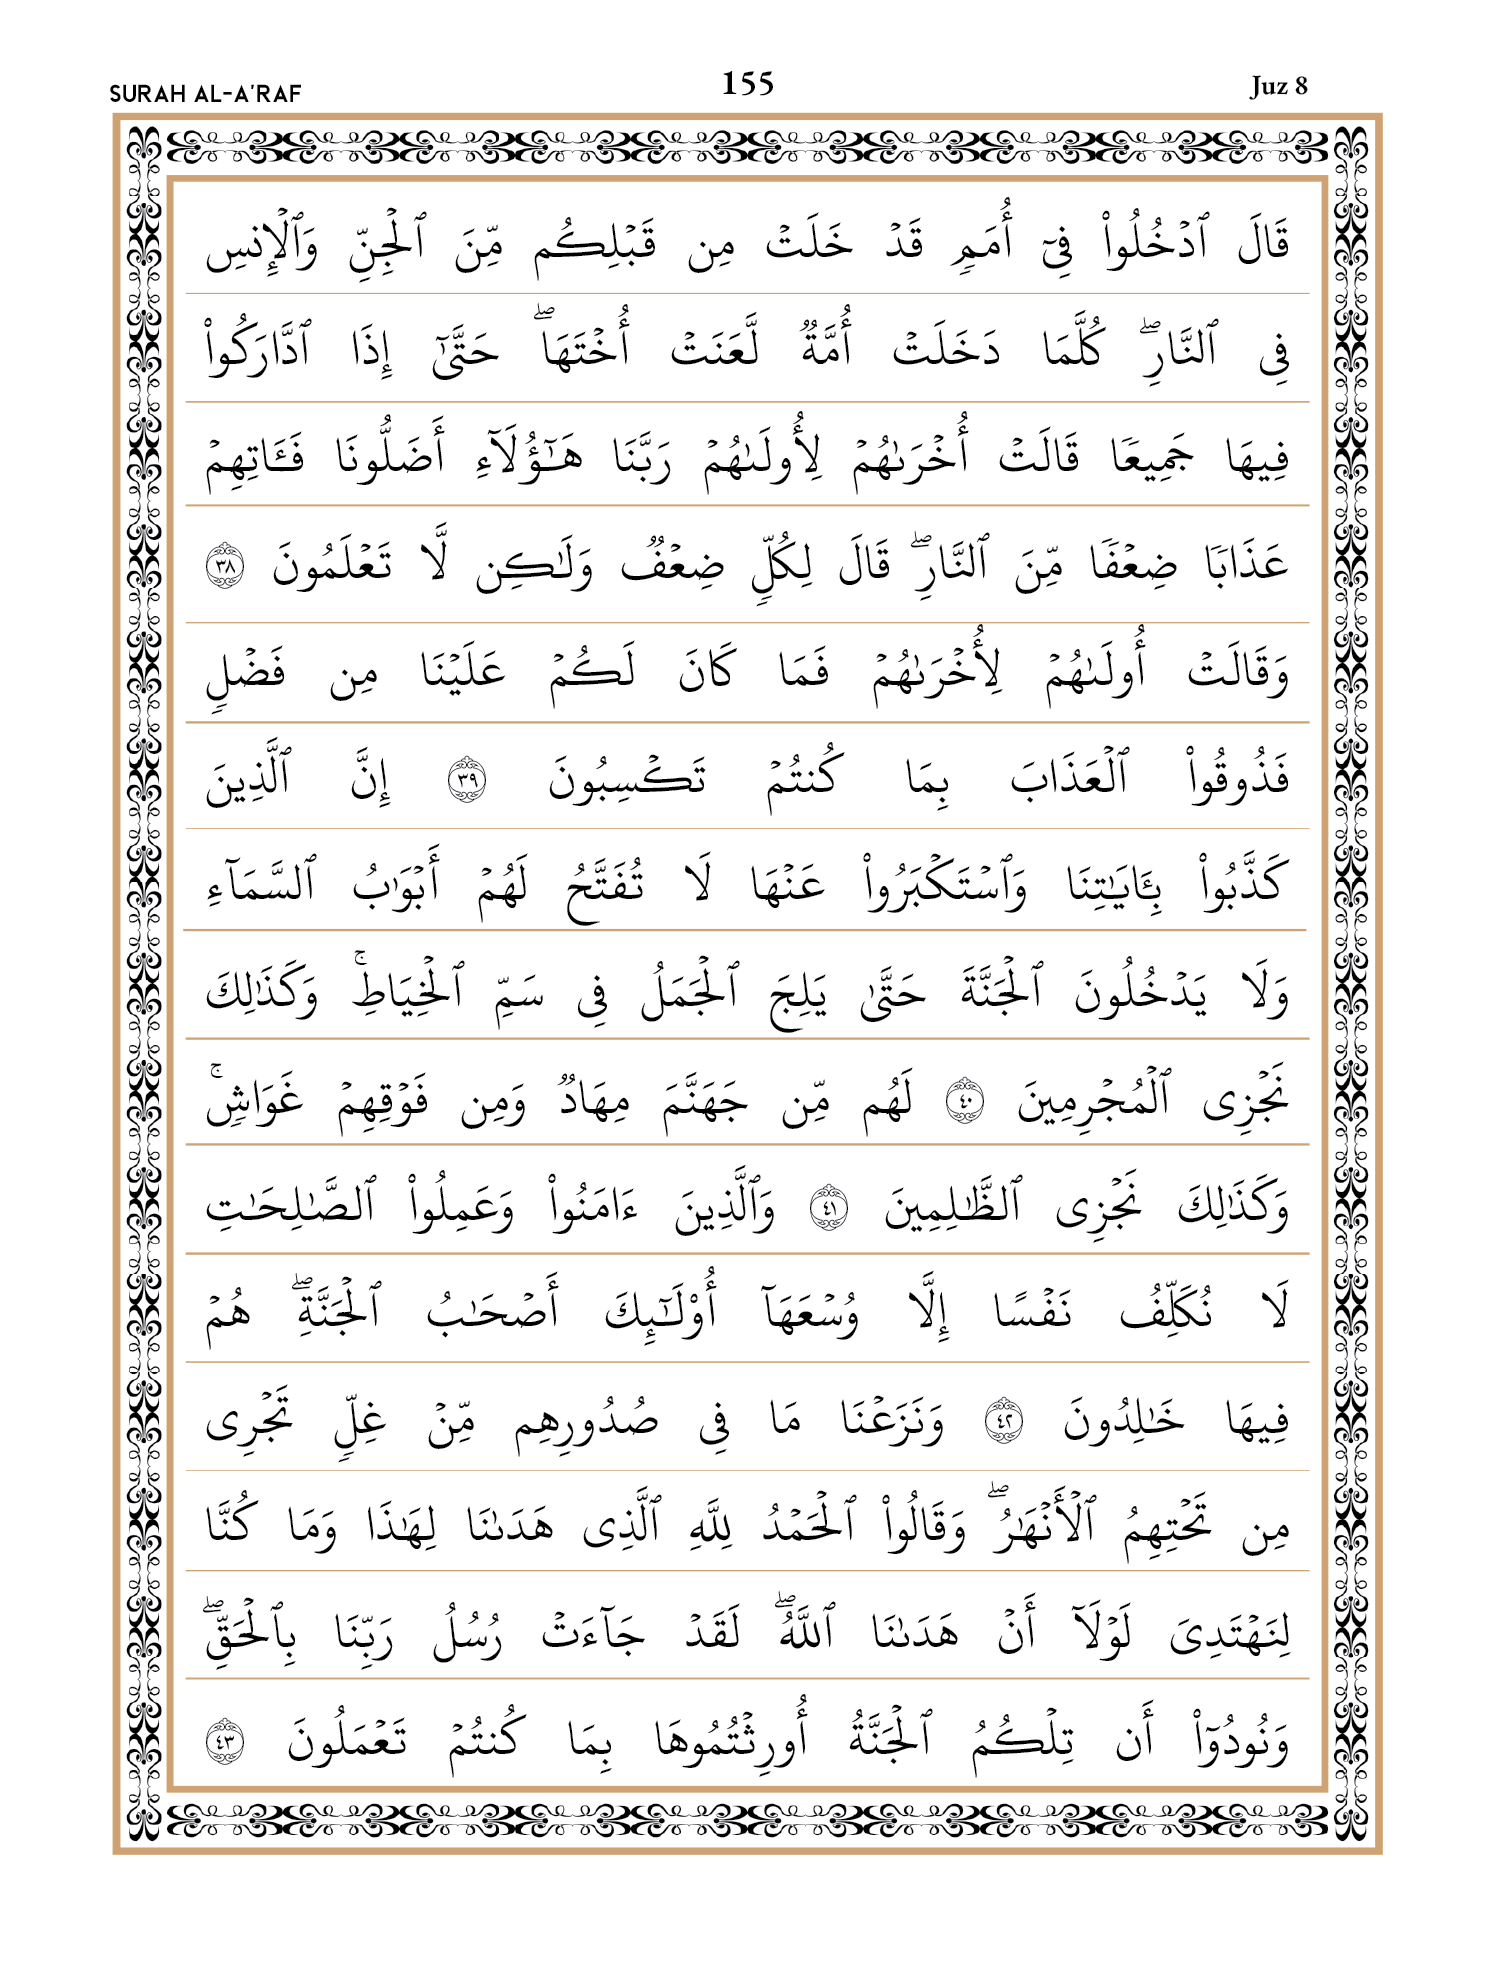 SURAH AL-A'RAF
155
Juz 8
قَالَ ٱدۡخُلُواْ فِيٓ أُمَمٖ قَدۡ خَلَتۡ مِن قَبۡلِكُم مِّنَ ٱلۡجِنِّ وَٱلۡإِنسِ
فِي ٱلنَّارِۖ كُلَّمَا دَخَلَتۡ أُمَّةٞ لَّعَنَتۡ أُخۡتَهَاۖ حَتَّىٰٓ إِذَا ٱدَّارَكُواْ
فِيهَا جَمِيعٗا قَالَتۡ أُخۡرَىٰهُمۡ لِأُولَىٰهُمۡ رَبَّنَا هَٰٓؤُلَآءِ أَضَلُّونَا فَـَٔاتِهِمۡ
عَذَابٗا ضِعۡفٗا مِّنَ ٱلنَّارِۖ قَالَ لِكُلّٖ ضِعۡفٞ وَلَٰكِن لَّا تَعۡلَمُونَ ٣٨
وَقَالَتۡ أُولَىٰهُمۡ لِأُخۡرَىٰهُمۡ فَمَا كَانَ لَكُمۡ عَلَيۡنَا مِن فَضۡلٖ
فَذُوقُواْ ٱلۡعَذَابَ بِمَا كُنتُمۡ تَكۡسِبُونَ ٣٩ إِنَّ ٱلَّذِينَ
كَذَّبُواْ بِـَٔايَٰتِنَا وَٱسۡتَكۡبَرُواْ عَنۡهَا لَا تُفَتَّحُ لَهُمۡ أَبۡوَٰبُ ٱلسَّمَآءِ
وَلَا يَدۡخُلُونَ ٱلۡجَنَّةَ حَتَّىٰ يَلِجَ ٱلۡجَمَلُ فِي سَمِّ ٱلۡخِيَاطِۚ وَكَذَٰلِكَ
نَجۡزِي ٱلۡمُجۡرِمِينَ ٤٠ لَهُم مِّن جَهَنَّمَ مِهَادٞ وَمِن فَوۡقِهِمۡ غَوَاشٖۚ
وَكَذَٰلِكَ نَجۡزِي ٱلظَّٰلِمِينَ ٤١ وَٱلَّذِينَ ءَامَنُواْ وَعَمِلُواْ ٱلصَّٰلِحَٰتِ
لَا نُكَلِّفُ نَفۡسًا إِلَّا وُسۡعَهَآ أُوْلَٰٓئِكَ أَصۡحَٰبُ ٱلۡجَنَّةِۖ هُمۡ
فِيهَا خَٰلِدُونَ ٤٢ وَنَزَعۡنَا مَا فِي صُدُورِهِم مِّنۡ غِلّٖ تَجۡرِي
مِن تَحۡتِهِمُ ٱلۡأَنۡهَٰرُۖ وَقَالُواْ ٱلۡحَمۡدُ لِلَّهِ ٱلَّذِي هَدَىٰنَا لِهَٰذَا وَمَا كُنَّا
لِنَهۡتَدِيَ لَوۡلَآ أَنۡ هَدَىٰنَا ٱللَّهُۖ لَقَدۡ جَآءَتۡ رُسُلُ رَبِّنَا بِٱلۡحَقِّۖ
وَنُودُوٓاْ أَن تِلۡكُمُ ٱلۡجَنَّةُ أُورِثۡتُمُوهَا بِمَا كُنتُمۡ تَعۡمَلُونَ ٤٣